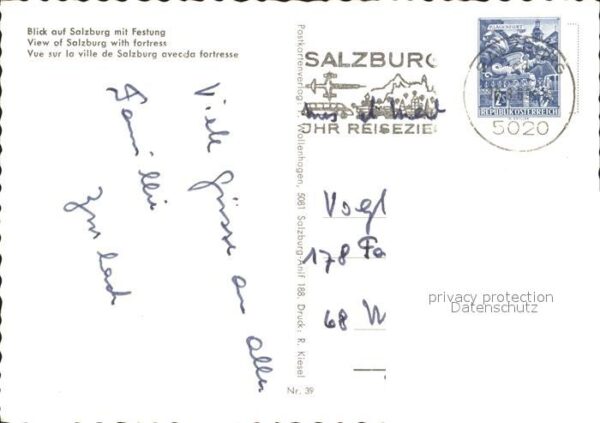 Blick auf Salzburg mit Festung
View of Salzburg with fortress
Vue sur la ville de Salzburg avecda fortresse
Viele Grüsse an alle
Familie
Postkartenverlag: R. Wollenhagen, 5081 Salzburg-Anif 188. Druck: R. Kiesel
Nr. 39
SALZBURG
IHR REISEZIE
5020
KLAGENFURT
REPUBLIK ÖSTERREICH
Vogl
178 Fa
68 W
privacy protection
Datenschutz